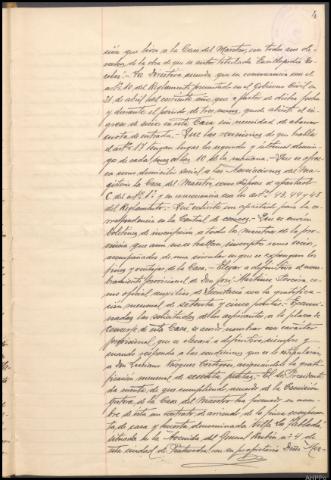 4
sión que lleva a la Casa del Maestro, con todos sus de-
beres, de la obra de que es autor titulada Enciclopedia Es-
colar.- La Directiva acuerda que en consonancia con el
artº. 10 del Reglamento presentado en el Gobierno Civil en
21 de abril del corriente año, que a partir de dicha fecha
y durante el período de tres meses, puede abrirse el in-
greso de socios en esta Casa sin necesidad de abonar
cuota de entrada.- Que las reuniones de que habla
el artº. 17 tengan lugar los segundos y últimos domin-
gos de cada mes a las 10 de la mañana.- Que se ofrez-
ca como domicilio social a las Asociaciones del Ma-
gisterio la Casa del Maestro, como dispone el apartado
C del artº. 1º y en consonancia con los artºs. 43, 44 y 45
del Reglamento.- Que solicite un apartado para la co-
rrespondencia en la Central de correos.- Que se envíen
boletines de inscripción a todos los maestros de la pro-
vincia que aun no se hallan inscriptos como socios,
acompañados de una circular en que se expongan los
fines y ventajas de la Casa.- Elevar a definitivo el nom-
bramiento provisional de don José Martínez Pereira co-
mo oficial auxiliar de Secretaría con la gratifica-
ción mensual de setenta y cinco pesetas.- Exami-
nadas las solicitudes de los aspirantes a la plaza de
conserje de esta Casa, se acordó nombrar con carácter
provisional, que se elevará a definitivo siempre y
cuando responda a las condiciones que se le estipularan
a don Luciano Vázquez Cortizo, asignándole la grati-
ficación mensual de sesenta pesetas.- El Sr. Presidente
da cuenta de que cumpliendo acuerdo de la Comisión
gestora de la Casa del Maestro ha firmado en nom-
bre de ésta un contrato de arriendo de la finca compues-
ta de casa y huerta denominada Villa La Poblada
situada en la Avenida del General Rubín nº 4 de
esta ciudad de Pontevedra, con su propietario Don